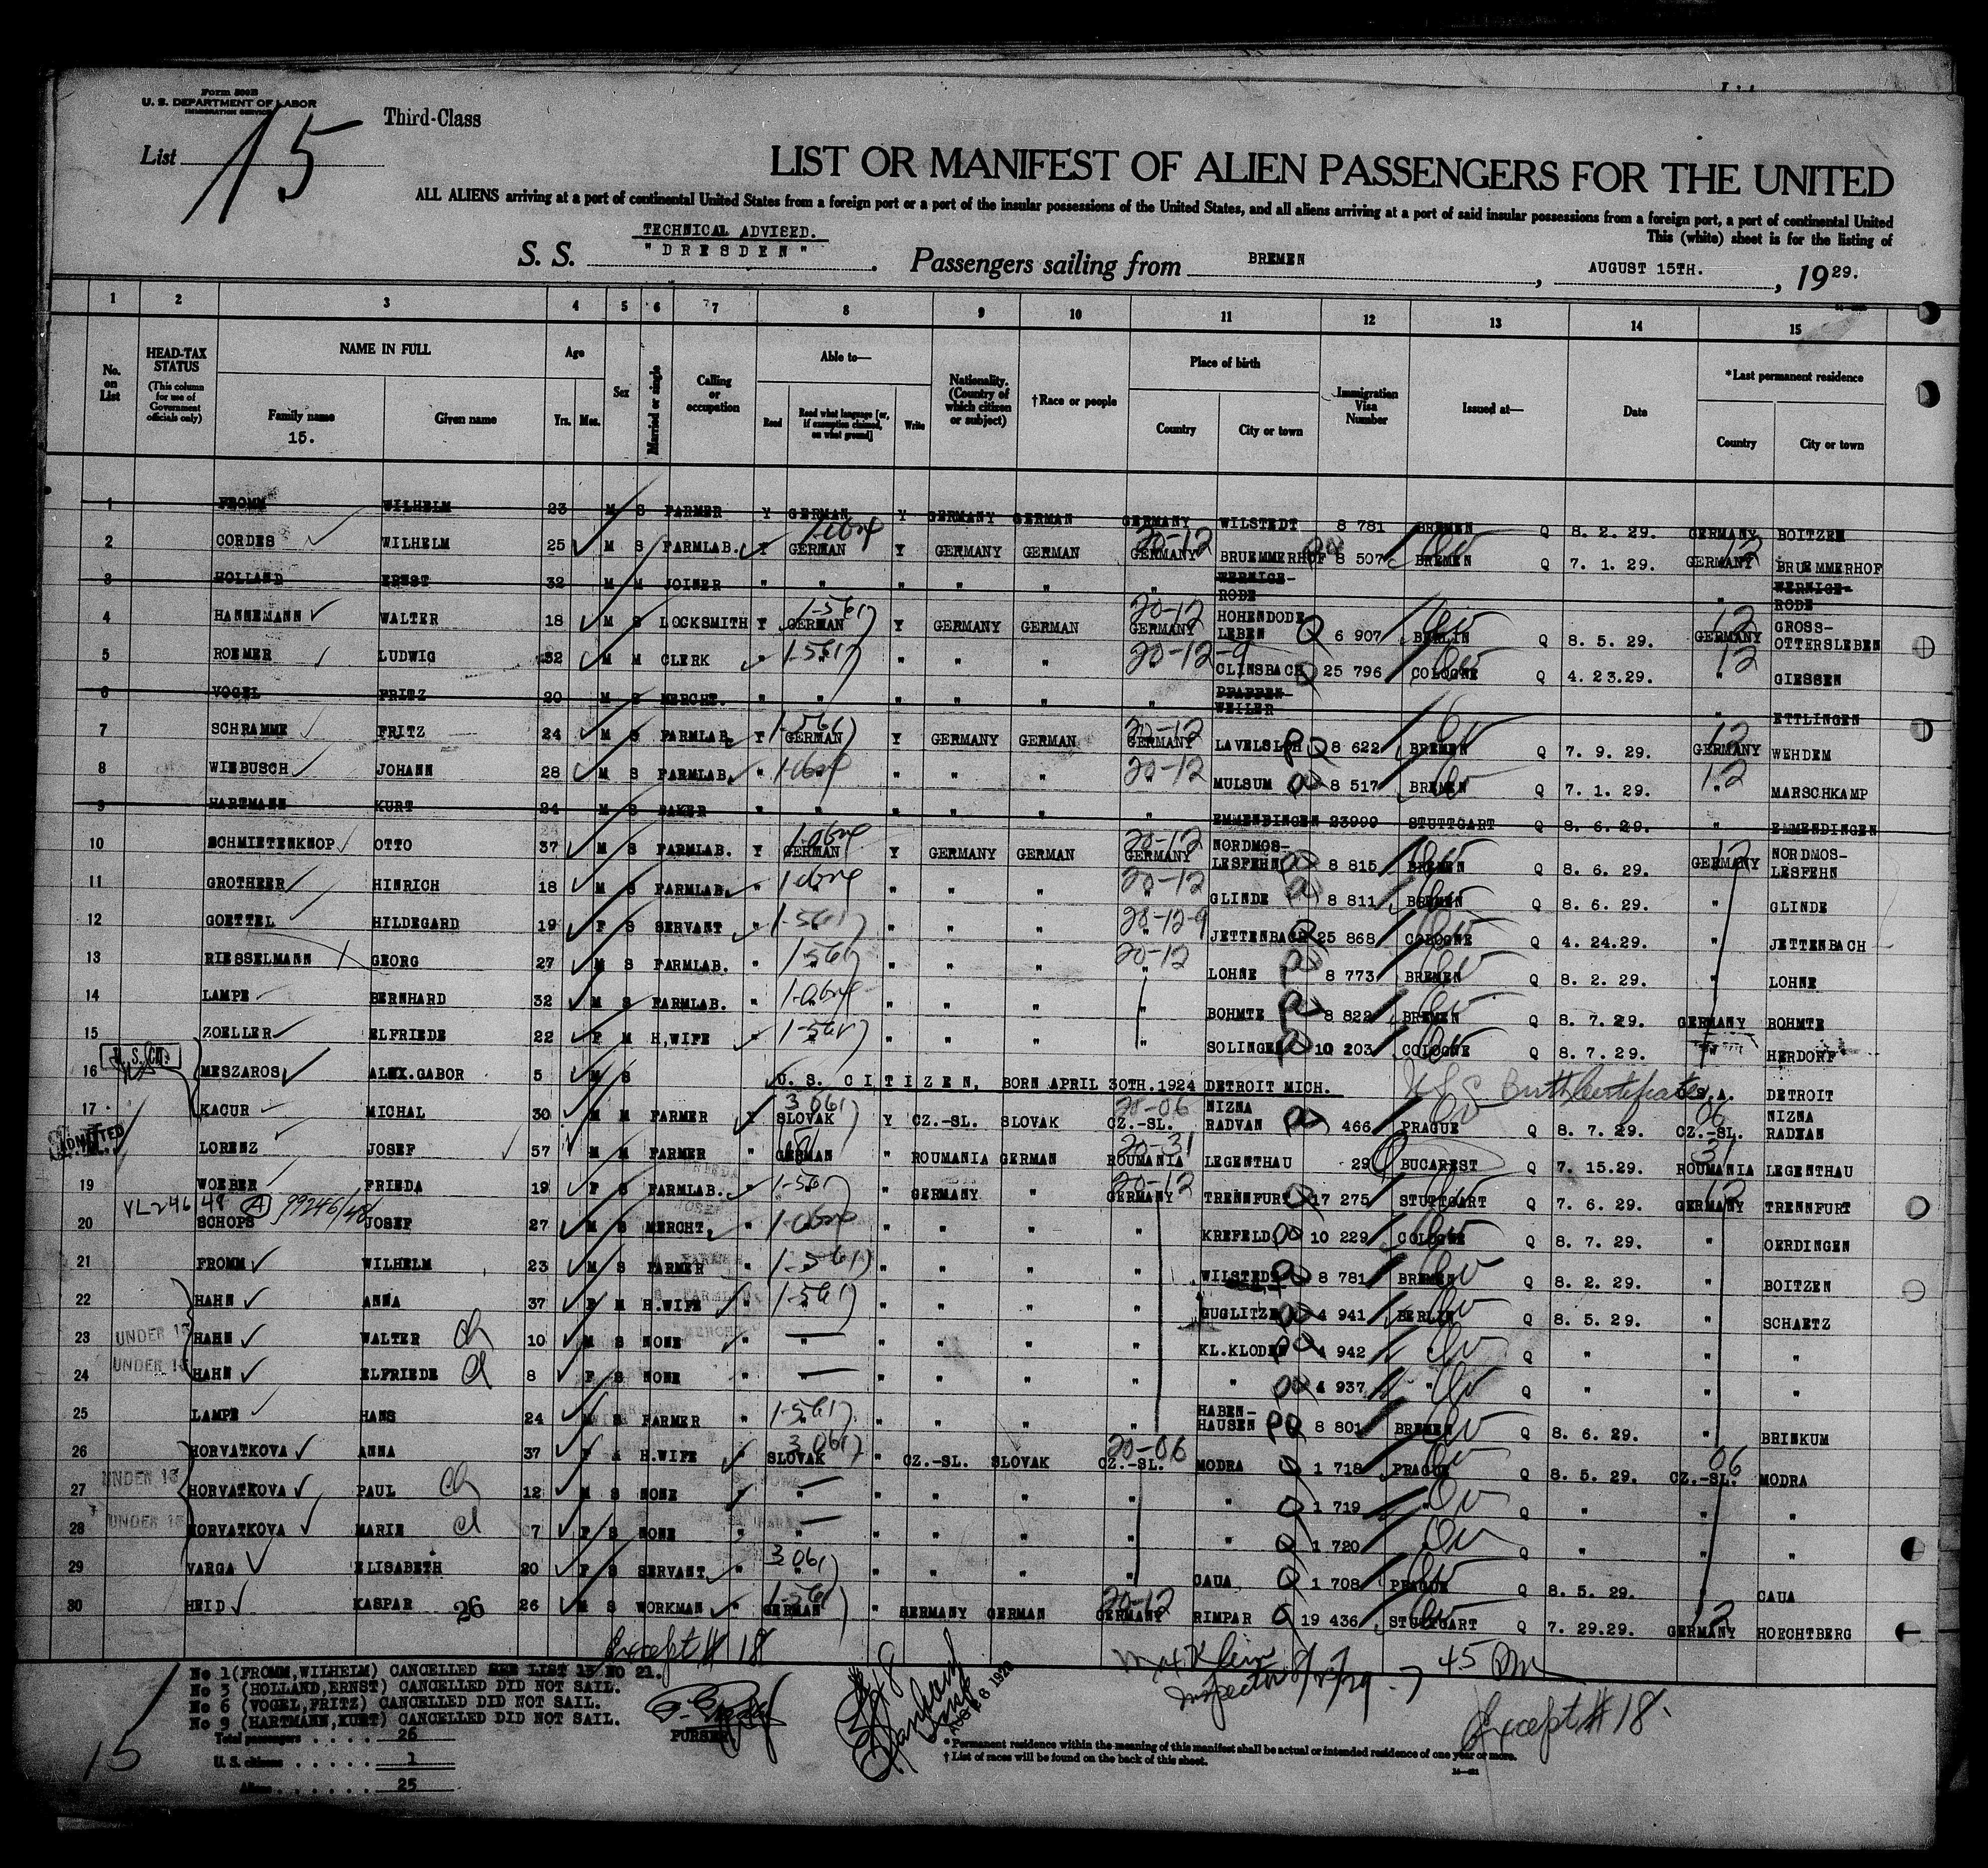 Form 500B
U. S. DEPARTMENT OF LABOR
IMMIGRATION SERVICE
Third-Class
List 15
LIST OR MANIFEST OF ALIEN PASSENGERS FOR THE UNITED
ALL ALIENS arriving at a port of continental United States from a foreign port or a port of the insular possessions of the United States, and all aliens arriving at a port of said insular possessions from a foreign port, a port of continental United
This (white) sheet is for the listing of
TECHNICAL ADVISED.
S. S. "DRESDEN". Passengers sailing from BREMEN, AUGUST 15TH., 1929.
1 2 3 4 5 6 7 8 9 10 11 12 13 14 15
No. on List
HEAD-TAX STATUS (This column for use of Government officials only)
NAME IN FULL
Family name
15.
Given name
Age
Yrs. Mos.
Sex
Married or single
Calling or occupation
Able to—
Read
Read what language [or, if exemption claimed, on what ground]
Write
Nationality. (Country of which citizen or subject)
†Race or people
Place of birth
Country
City or town
Immigration Visa Number
Issued at—
Date
*Last permanent residence
Country
City or town
1 FROMM WILHELM 23 M S FARMER Y GERMAN Y GERMANY GERMAN GERMANY WILSTEDT 8 781 BREMEN Q 8. 2. 29. GERMANY BOITZEN
2 CORDES WILHELM 25 M S FARMLAB. Y GERMAN Y GERMANY GERMAN GERMANY 20-12 BRUEMMERHOF 8 507 BREMEN Q 7. 1. 29. GERMANY 12 BRUEMMERHOF
3 HOLLAND ERNST 32 M M JOINER " " " " " " WERNIGE-RODE " WERNIGE-RODE
4 HANNEMANN WALTER 18 M S LOCKSMITH Y GERMAN Y GERMANY GERMAN GERMANY 20-12 HOHENDODE LEBEN 6 907 BERLIN Q 8. 5. 29. GERMANY 12 GROSS-OTTERSLEBEN
5 ROEMER LUDWIG 32 M M CLERK " " " " " 20-12-9 CLINSBACH 25 796 COLOGNE Q 4. 23.29. " 12 GIESSEN
6 VOGEL FRITZ 20 M S MERCHT. " " " " " " PFAFFEN-WEILER " ETTLINGEN
7 SCHRAMME FRITZ 24 M S FARMLAB. Y GERMAN Y GERMANY GERMAN GERMANY 20-12 LAVELSLOH 8 622 BREMEN Q 7. 9. 29. GERMANY 12 WEHDEM
8 WIEBUSCH JOHANN 28 M S FARMLAB. " " " " " 20-12 MULSUM 8 517 BREMEN Q 7. 1. 29. " 12 MARSCHKAMP
9 HARTMANN KURT 24 M S BAKER " " " " " " EMMENDINGEN 23999 STUTTGART Q 8. 6. 29. " EMMENDINGEN
10 SCHMIETENKNOP OTTO 37 M S FARMLAB. Y GERMAN Y GERMANY GERMAN GERMANY 20-12 NORDMOS-LESFEHN 8 815 BREMEN Q 8. 6. 29. GERMANY 12 NORDMOS-LESFEHN
11 GROTHEER HINRICH 18 M S FARMLAB. " " " " " 20-12 GLINDE 8 811 BREMEN Q 8. 6. 29. " GLINDE
12 GOETTEL HILDEGARD 19 F S SERVANT " " " " " 20-12-9 JETTENBACH 25 868 COLOGNE Q 4. 24.29. " JETTENBACH
13 RIESSELMANN GEORG 27 M S FARMLAB. " " " " " 20-12 LOHNE 8 773 BREMEN Q 8. 2. 29. " LOHNE
14 LAMPE BERNHARD 32 M S FARMLAB. " " " " " " BOHMTE 8 822 BREMEN Q 8. 7. 29. GERMANY BOHMTE
15 ZOELLER ELFRIEDE 22 F M H,WIFE " " " " " " SOLINGEN 10 203 COLOGNE Q 8. 7. 29. " HERDORF
16 MESZAROS ALEX.GABOR 5 M S U. S. CITIZEN, BORN APRIL 30TH.1924 DETROIT MICH. U S Birth Certificate U.S.A. DETROIT
17 KACUR MICHAL 30 M M FARMER Y SLOVAK Y CZ.-SL. SLOVAK CZ.-SL. 20-06 NIZNA RADVAN 466 PRAGUE Q 8. 7. 29. CZ.-SL. 06 NIZNA RADVAN
ADMITTED LORENZ JOSEF 57 M M FARMER " GERMAN " ROUMANIA GERMAN ROUMANIA 20-31 LEGENTHAU 29 BUCAREST Q 7. 15.29. ROUMANIA 31 LEGENTHAU
19 WOEBER FRIEDA 19 F S FARMLAB. " " " GERMANY " GERMANY 20-12 TRENNFURT 17 275 STUTTGART Q 7. 6. 29. GERMANY 12 TRENNFURT
VL246/48 (A) 99246/48
20 SCHOPS JOSEF 27 M S MERCHT, " " " " " " KREFELD 10 229 COLOGNE Q 8. 7. 29. " OERDINGEN
21 FROMM WILHELM 23 M S FARMER " " " " " " WILSTEDT 8 781 BREMEN Q 8. 2. 29. " BOITZEN
22 HAHN ANNA 37 F M H.WIFE " " " " " " GUGLITZEN 4 941 BERLIN Q 8. 5. 29. " SCHAETZ
23 UNDER 16 HAHN WALTER ch 10 M S NONE " — " " " " KL.KLODEN 4 942 " Q " " "
24 UNDER 16 HAHN ELFRIEDE cl 8 F S NONE " — " " " " " 4 937 " Q " " "
25 LAMPE HANS 24 M S FARMER " " " " " " HABEN-HAUSEN 8 801 BREMEN Q 8. 6. 29. " BRINKUM
26 HORVATKOVA ANNA 37 F M H.WIFE " SLOVAK " CZ.-SL. SLOVAK CZ.-SL. 20-06 MODRA 1 718 PRAGUE Q 8. 5. 29. CZ.-SL. 06 MODRA
27 UNDER 16 HORVATKOVA PAUL ch 12 M S NONE " " " " " " " 1 719 " Q " " "
28 UNDER 16 HORVATKOVA MARIE cl 7 F S NONE " " " " " " " 1 720 Q " " "
29 VARGA ELISABETH 20 F S SERVANT " " " " " " CAUA 1 708 PRAGUE Q 8. 5. 29. " CAUA
30 HEID KASPAR 26 26 M S WORKMAN " GERMAN " GERMANY GERMAN GERMANY 20-12 RIMPAR 19 436 STUTTGART Q 7. 29.29. GERMANY 12 HOECHTBERG
Except # 18
No 1(FROMM,WILHELM) CANCELLED SEE LIST 15 NO 21.
No 3 (HOLLAND,ERNST) CANCELLED DID NOT SAIL.
No 6 (VOGEL,FRITZ) CANCELLED DID NOT SAIL.
No 9 (HARTMANN,KURT) CANCELLED DID NOT SAIL.
Total passengers . . . . 26
U. S. citizens . . . . . 1
Aliens . . . . . . 25
15
PURSER
#18
Max Klein
Inspector
45
Except # 18.
* Permanent residence within the meaning of this manifest shall be actual or intended residence of one year or more.
† List of races will be found on the back of this sheet.